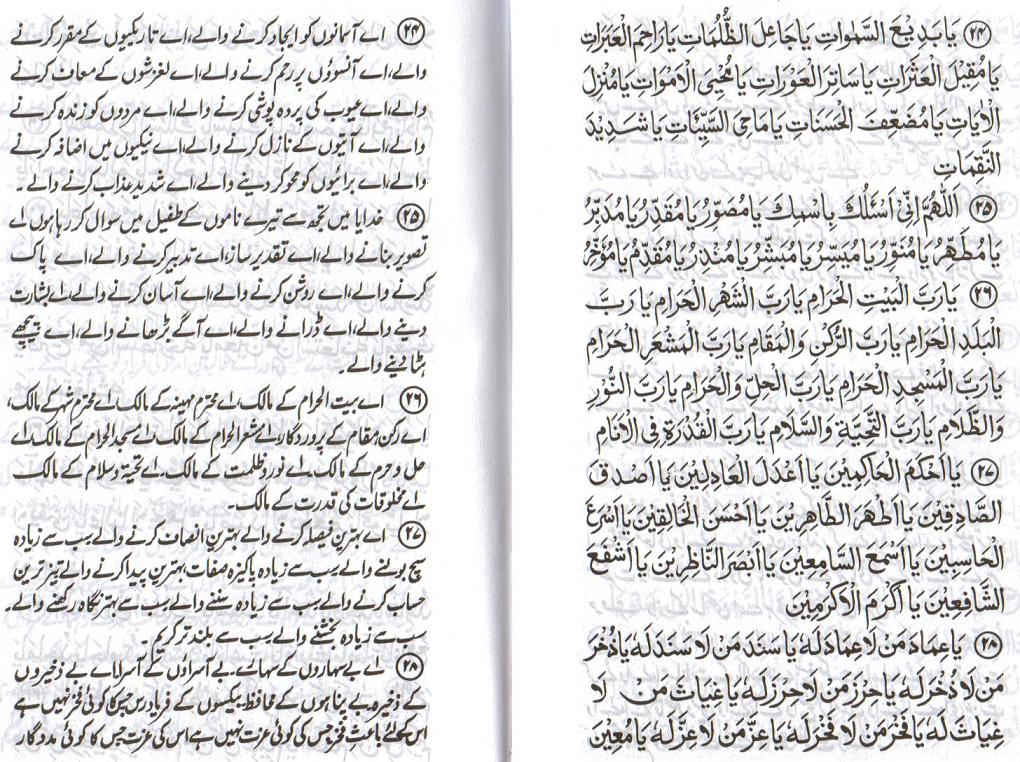 ۲۴ يَا بَدِيْعَ السَّمٰوَاتِ يَا جَاعِلَ الظُّلُمَاتِ يَا رَاحِمَ الْعَبَرَاتِ
يَا مُقِيْلَ الْعَثَرَاتِ يَا سَاتِرَ الْعَوْرَاتِ يَا مُحْيِيَ الْاَمْوَاتِ يَا مُنْزِلَ
الْاٰيَاتِ يَا مُضَعِّفَ الْحَسَنَاتِ يَا مَاحِيَ السَّيِّئَاتِ يَا شَدِيْدَ
النَّقِمَاتِ
۲۵ اَللّٰهُمَّ اِنِّيْ اَسْئَلُكَ بِاسْمِكَ يَا مُصَوِّرُ يَا مُقَدِّرُ يَا مُدَبِّرُ
يَا مُطَهِّرُ يَا مُنَوِّرُ يَا مُيَسِّرُ يَا مُبَشِّرُ يَا مُنْذِرُ يَا مُقَدِّمُ يَا مُؤَخِّرُ
۲۶ يَا رَبَّ الْبَيْتِ الْحَرَامِ يَا رَبَّ الشَّهْرِ الْحَرَامِ يَا رَبَّ
الْبَلَدِ الْحَرَامِ يَا رَبَّ الرُّكْنِ وَالْمَقَامِ يَا رَبَّ الْمَشْعَرِ الْحَرَامِ
يَا رَبَّ الْمَسْجِدِ الْحَرَامِ يَا رَبَّ الْحِلِّ وَالْحَرَامِ يَا رَبَّ النُّوْرِ
وَالظَّلَامِ يَا رَبَّ التَّحِيَّةِ وَالسَّلَامِ يَا رَبَّ الْقُدْرَةِ فِي الْاَنَامِ
۲۷ يَا اَحْكَمَ الْحَاكِمِيْنَ يَا اَعْدَلَ الْعَادِلِيْنَ يَا اَصْدَقَ
الصَّادِقِيْنَ يَا اَطْهَرَ الطَّاهِرِيْنَ يَا اَحْسَنَ الْخَالِقِيْنَ يَا اَسْرَعَ
الْحَاسِبِيْنَ يَا اَسْمَعَ السَّامِعِيْنَ يَا اَبْصَرَ النَّاظِرِيْنَ يَا اَشْفَعَ
الشَّافِعِيْنَ يَا اَكْرَمَ الْاَكْرَمِيْنَ
۲۸ يَا عِمَادَ مَنْ لَا عِمَادَ لَهٗ يَا سَنَدَ مَنْ لَا سَنَدَ لَهٗ يَا ذُخْرَ
مَنْ لَا ذُخْرَ لَهٗ يَا حِرْزَ مَنْ لَا حِرْزَ لَهٗ يَا غِيَاثَ مَنْ لَا
غِيَاثَ لَهٗ يَا فَخْرَ مَنْ لَا فَخْرَ لَهٗ يَا عِزَّ مَنْ لَا عِزَّ لَهٗ يَا مُعِيْنَ
۲۴ اے آسمانوں کو ایجاد کرنے والے، اے تاریکیوں کے مقرر کرنے
والے، اے آنسوؤں پر رحم کرنے والے، اے لغزشوں کے معاف کرنے
والے، اے عیوب کی پردہ پوشی کرنے والے، اے مردوں کو زندہ کرنے
والے، اے آیتوں کے نازل کرنے والے، اے نیکیوں میں اضافہ کرنے
والے، اے برائیوں کو محو کر دینے والے، اے شدید عذاب کرنے والے۔
۲۵ خدایا میں تجھ سے تیرے ناموں کے طفیل میں سوال کر رہا ہوں اے
تصویر بنانے والے، اے تقدیر ساز، اے تدبیر کرنے والے، اے پاک
کرنے والے، اے روشن کرنے والے، اے آسان کرنے والے، اے بشارت
دینے والے، اے ڈرانے والے، اے آگے بڑھانے والے، اے پیچھے
ہٹا دینے والے۔
۲۶ اے بیت الحرام کے مالک، اے محترم مہینہ کے مالک، اے محترم شہر کے مالک،
اے رکن و مقام کے پروردگار، اے مشعر الحرام کے مالک، اے مسجد الحرام کے مالک، اے
حل و حرم کے مالک، اے نور و ظلمت کے مالک۔ اے تحیۃ و سلام کے مالک۔
اے مخلوقات کی قدرت کے مالک۔
۲۷ اے بہترین فیصلہ کرنے والے بہترین انصاف کرنے والے سب سے زیادہ
سچ بولنے والے سب سے زیادہ پاکیزہ صفات بہترین پیدا کرنے والے تیز ترین
حساب کرنے والے سب سے زیادہ سننے والے سب سے بہتر نگاہ رکھنے والے۔
سب سے زیادہ بخشنے والے سب سے بلند تر کریم۔
۲۸ اے بے سہاروں کے سہارے۔ بے آسراؤں کے آسرا، اے بے ذخیروں
کے ذخیرہ، بے پناہوں کے محافظ، بیکسوں کے فریاد رس جس کا کوئی فخر نہیں ہے
اس کیلئے باعث فخر جس کی کوئی عزت نہیں ہے اس کی عزت جس کا کوئی مددگار